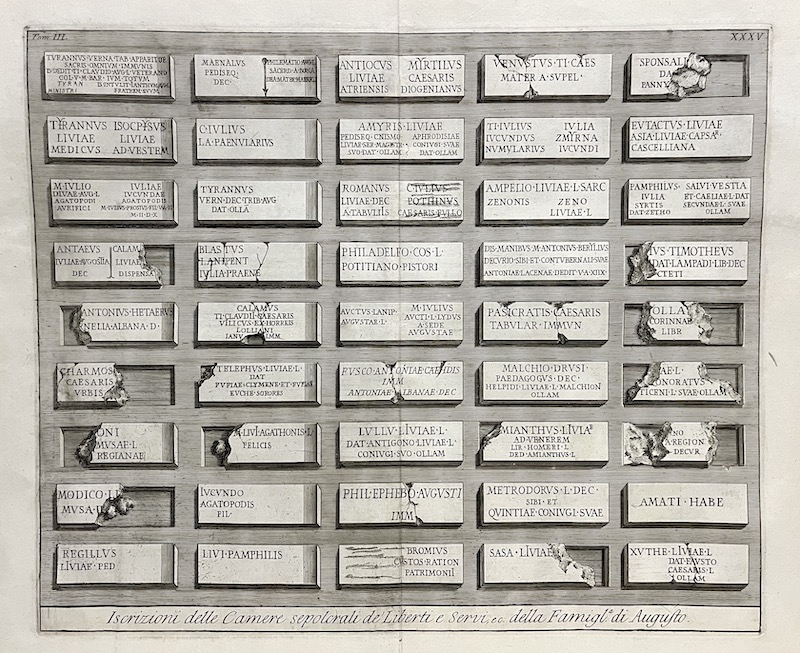 Tom. III.
XXXV
TYRANNVS·VERNA·TAB·APPARITOR
SACRIS·OMNIVM·IMMVNIS
COL·V·M·BAR·IVM·TOTVM
TYRAN
MINISTRI
FRATREM·SVVM
MAENALVS
PEDISEQ·
DEC·
ANTIOCVS MYRTILVS
LIVIAE CAESARIS
ATRIENSIS DIOGENIANVS
VENVSTVS·TI·CAES
MATER·A·SVPEL·
SPONSALI
DA
FANNY
TYRANNVS ISOCRYSVS
LIVIAE LIVIAE
MEDICVS AD·VESTEM
C·IVLIVS
LA·PAENVLARIVS
AMYRIS·LIVIAE
PEDISEQ·CNISMO APHRODISIAE
LIVIAE·SER·MAGISTR· CONIVGI·SVAE
SVO·DAT·OLLAM DAT·OLLAM
TI·IVLIVS IVLIA
IVCVNDVS ZMIRNA
NVMVLARIVS IVCVNDI
EVTACTVS·LIVIAE
ASIA·LIVIAE·CAPSAR·
CASCELLIANA
M·IVLIO IVLIAE
DIVAE·AVG·L IVCVNDAE
AGATOPODI AGATOPODIS
AVRIFICI
M·II·D·X
TYRANNVS
VERN·DEC·TRIB·AVG
DAT·OLLA
ROMANVS C·IVLIVS
LIVIAE·DEC POTHINVS
A·TABVLIIS CAESARIS·FVLLO
AMPELIO·LIVIAE·L·SARC
ZENONIS ZENO
LIVIAE·L
PAMPHILVS· SALVI·VESTIA
IVLIA ET·CAELIAE·L·DAT
SYRTIS SECVNDAE·L·SVAE
DAT·ZETHO OLLAM
ANTAEVS CALAM
IVLIAE·AVGVSTIA LIVIAE
DEC DISPENSA
BLASTVS
LANIPENT
IVLIA·PRAENE
PHILADELFO·COS·L·
POTITIANO·PISTORI
DIS·MANIBVS·M·ANTONIVS·BERYLLVS
DECVRIO·SIBI·ET·CONTVBERNALI·SVAE
ANTONIAE·LACENAE·DEDIT·VA·XIIX·
IVS·TIMOTHEVS
DAT·LAMPADI·LIB·DEC
CTETI
ANTONIVS·HETAERVS
NELIA·ALBANA·D·
CALAMVS
TI·CLAVDII·CAESARIS
VILICVS·EX·HORREIS
LOLLIANI
IMM
AVCTVS·LANIP· M·IVLIVS
AVGVSTAE·L· AVCTI·L·LYDVS
A·SEDE
AVGVSTAE
PASICRATIS·CAESARIS
TABVLAR·IMMVN
OLLA
CORINNAE
LIBR
CHARMOS
CAESARIS
VRBIS
TELEPHVS·LIVIAE·L·
DAT
PVPIAE·CLYMENE·ET·PVPIAE
EVCHE·SORORES
FVSCO·ANTONIAE·CAENDIS
IMM
ANTONIAE·ALBANAE·DEC
MALCHIO·DRVSI
PAEDAGOGVS·DEC·
HELPIDI·LIVIAE·L·MALCHION
OLLAM
AE·L
ONORATVS
TICENI·L·SVAE·OLLAM
ONI
MVSAE·L
REGIANAE
M·LIVI·AGATHONIS·L
FELICIS
LVLLV·LIVIAE·L·
DAT·ANTIGONO·LIVIAE·L·
CONIVGI·SVO·OLLAM
MIANTHVS·LIVIAE
AD·VENEREM
LIB·HOMERI·L
DED·AMIANTHVS·L
NO
A·REGION
DECVR
MODICO·LI
MVSA·L
IVCVNDO
AGATOPODIS
FIL·
PHIL·EPHEBO·AVGVSTI
IMM
METRODORVS·L·DEC·
SIBI·ET
QVINTIAE·CONIVGI·SVAE
AMATI·HABE
REGILLVS
LIVIAE·PED
LIVI·PAMPHILIS
BROMIVS
CVSTOS·RATION
PATRIMONII
SASA·LIVIAE
XVTHE·LIVIAE·L
DAT·FAVSTO
CAESARIS·L
OLLAM
Iscrizioni delle Camere sepolcrali de' Liberti e Servi, ec. della Famigl.ᵃ di Augusto.